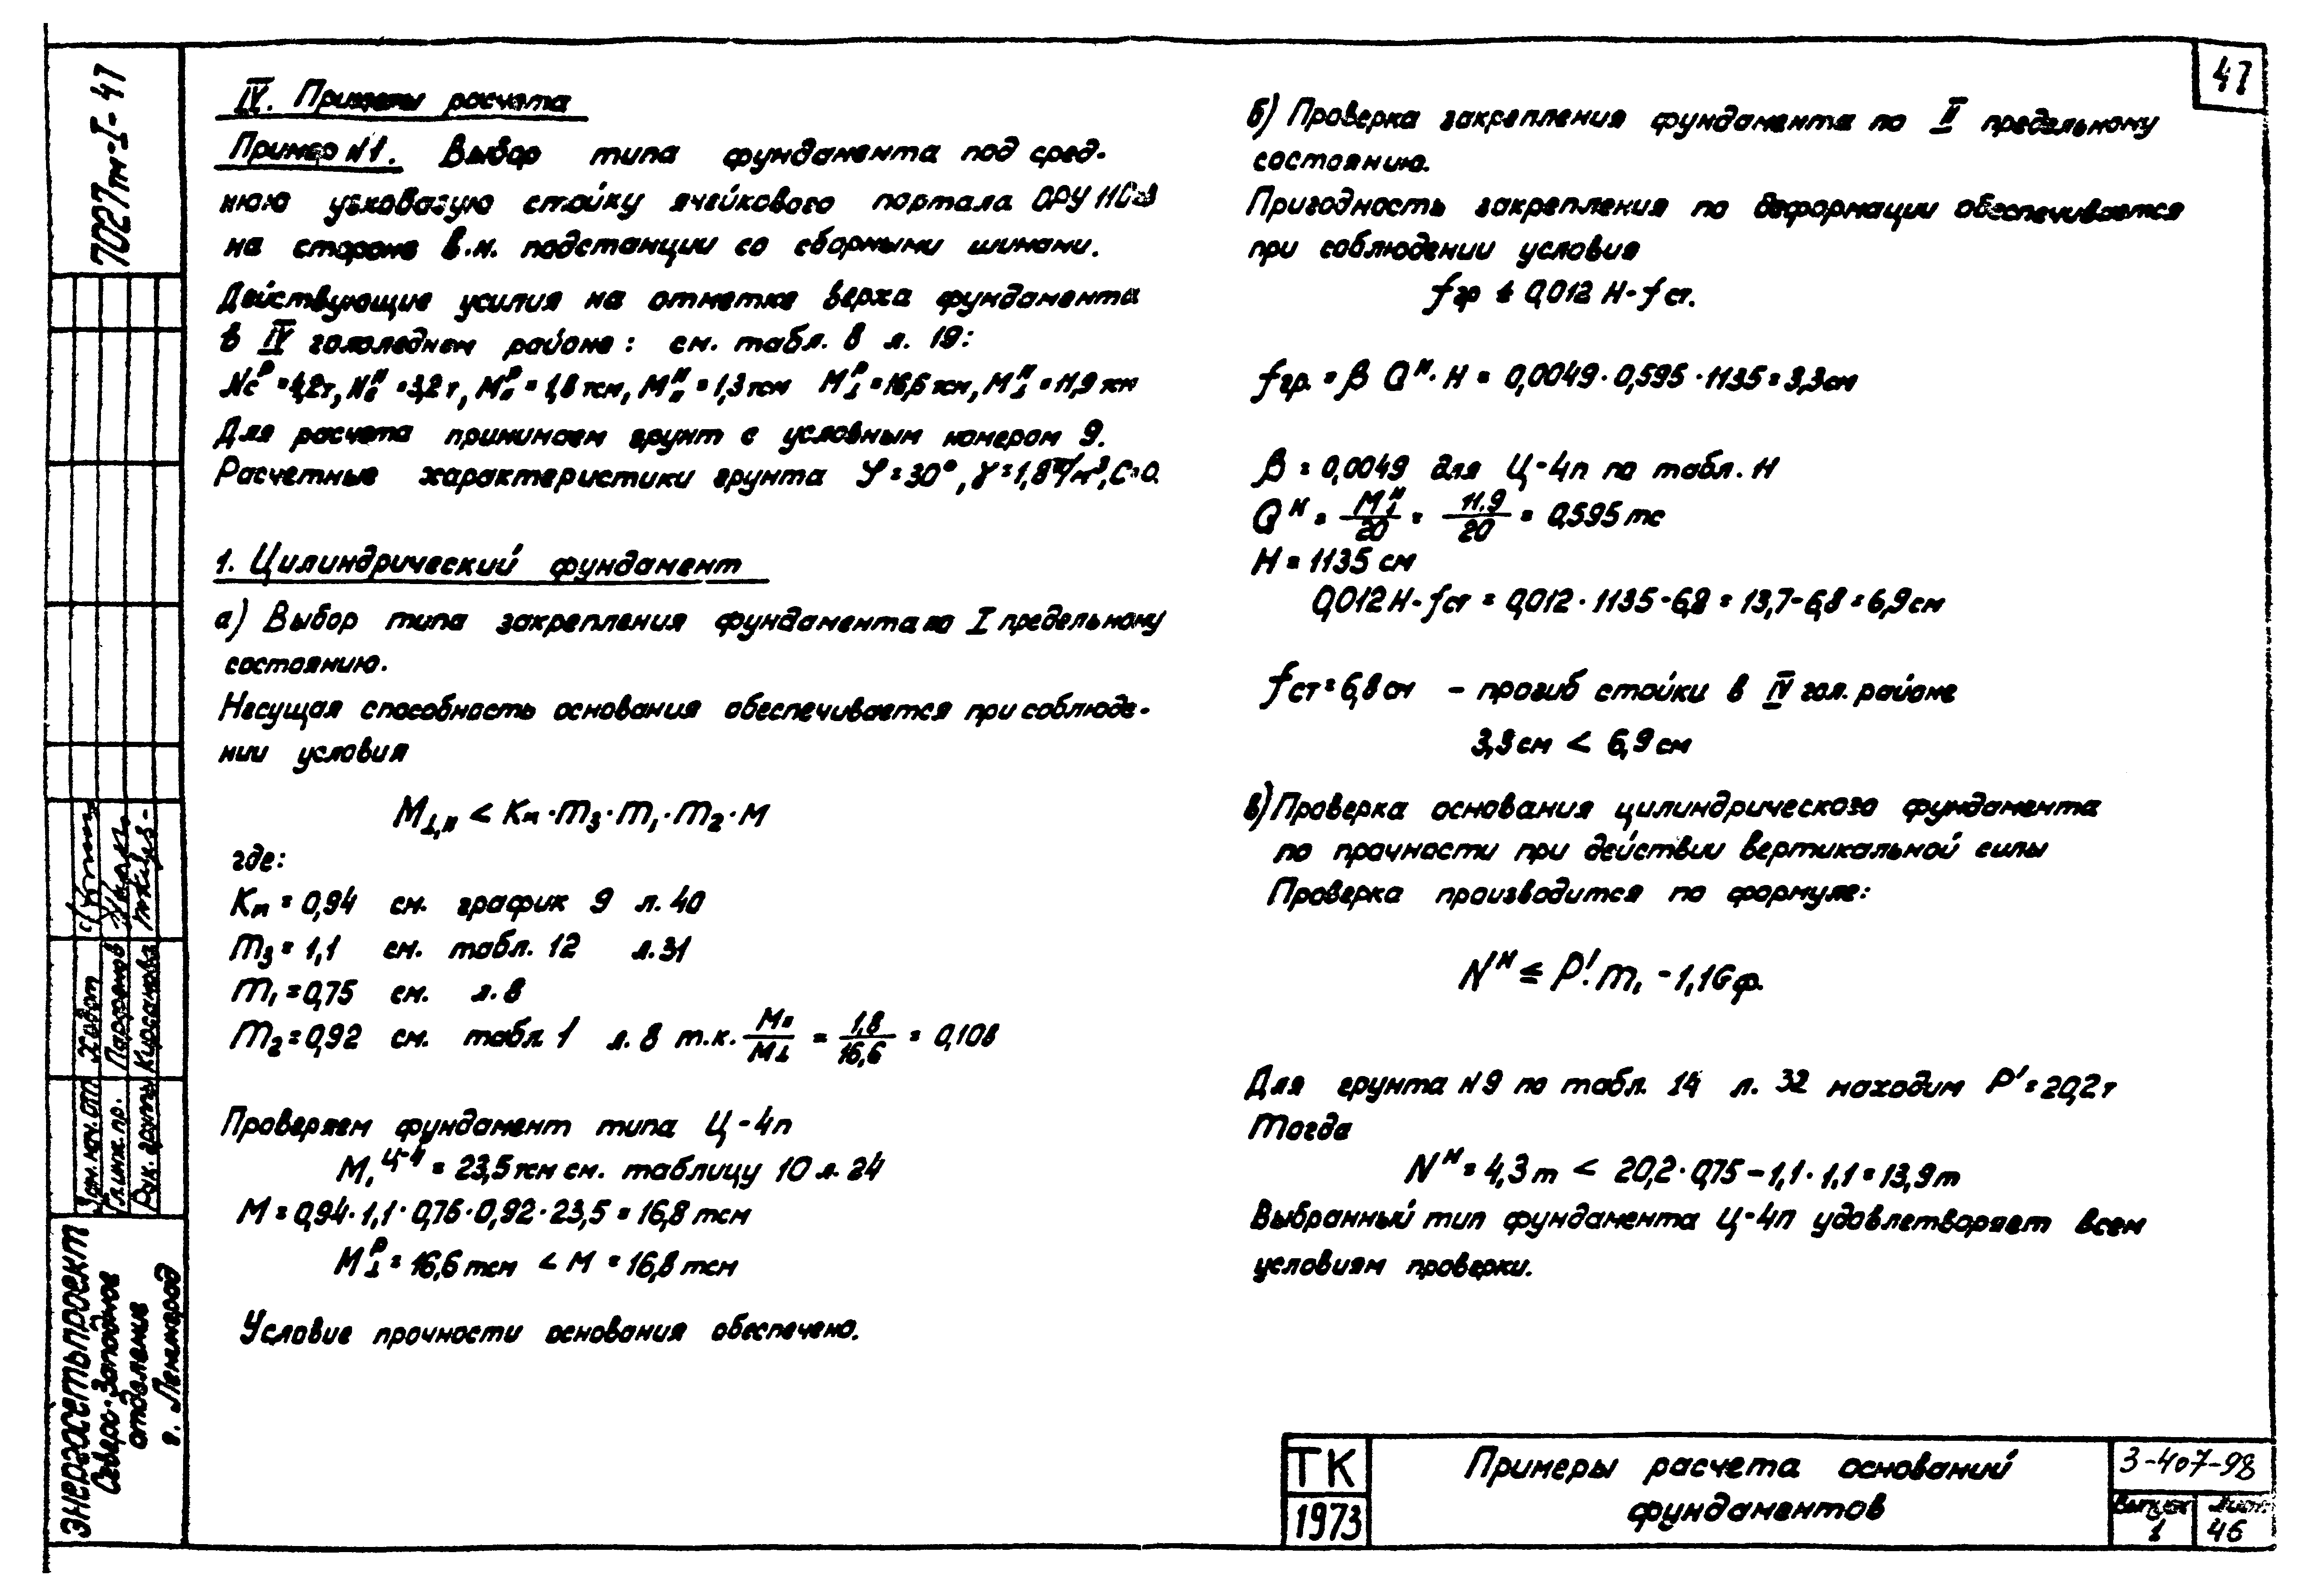 7027тм-I-47
47
IV. Примеры расчета
Пример N1. Выбор типа фундамента под сред-
нюю угловую стойку ячейкового портала ОРУ 110кв
на стороне в.н. подстанции со сборными шинами.
Действующие усилия на отметке верха фундамента
в IV гололедном районе: см. табл. 8 л. 19:
Nсᴾ = 4,2т, Nсᴴ = 3,2т, Mııᴾ = 1,8тсм, Mııᴴ = 1,3тсм M⊥ᴾ = 16,6тсм, M⊥ᴴ = 11,9тсм
Для расчета принимаем грунт с условным номером 9.
Расчетные характеристики грунта φ = 30°, γ = 1,8т/м³, С=0.
1. Цилиндрический фундамент
а) Выбор типа закрепления фундамента по I предельному
состоянию.
Несущая способность основания обеспечивается при соблюде-
нии условия
M⊥,ıı < Kм · m₃ · m₁ · m₂ · M
где:
Kм = 0,94 см. график 9 л. 40
m₃ = 1,1 см. табл. 12 л. 31
m₁ = 0,75 см. л. 8
m₂ = 0,92 см. табл. 1 л. 8 т.к. Mıı/M⊥ = 1,8/16,6 = 0,108
Проверяем фундамент типа Ц-4п
M₁ᶣ⁻⁴ = 23,5тсм см. таблицу 10 л. 24
M = 0,94 · 1,1 · 0,75 · 0,92 · 23,5 = 16,8 тсм
M⊥ᴾ = 16,6 тсм < M = 16,8 тсм
Условие прочности основания обеспечено.
б) Проверка закрепления фундамента по II предельному
состоянию.
Пригодность закрепления по деформации обеспечивается
при соблюдении условия
fгр ≤ 0,012 H - fст.
fгр. = β Qᴴ · H = 0,0049 · 0,595 · 1135 = 3,3см
β = 0,0049 для Ц-4п по табл. 11
Qᴴ = M⊥ᴴ/20 = 11.9/20 = 0,595 тс
H = 1135 см
0,012 H - fст = 0,012 · 1135 - 6,8 = 13,7 - 6,8 = 6,9 см
fст = 6,8 см - прогиб стойки в IV гол. районе
3,3 см < 6,9 см
в) Проверка основания цилиндрического фундамента
по прочности при действии вертикальной силы
Проверка производится по формуле:
Nᴴ ≤ P' · m₁ - 1,1Gф.
Для грунта N9 по табл. 14 л. 32 находим P' = 20,2т
Тогда
Nᴴ = 4,3т < 20,2 · 0,75 - 1,1 · 1,1 = 13,9т
Выбранный тип фундамента Ц-4п удовлетворяет всем
условиям проверки.
Зам. нач. отп. Ходот
Гл. инж. пр. Парфенов
Рук. группы Кирсанова
ЭНЕРГОСЕТЬПРОЕКТ
Северо-Западное
отделение
г. Ленинград
ТК
1973
Примеры расчета оснований
фундаментов
3-407-98
Выпуск
1
Лист
46